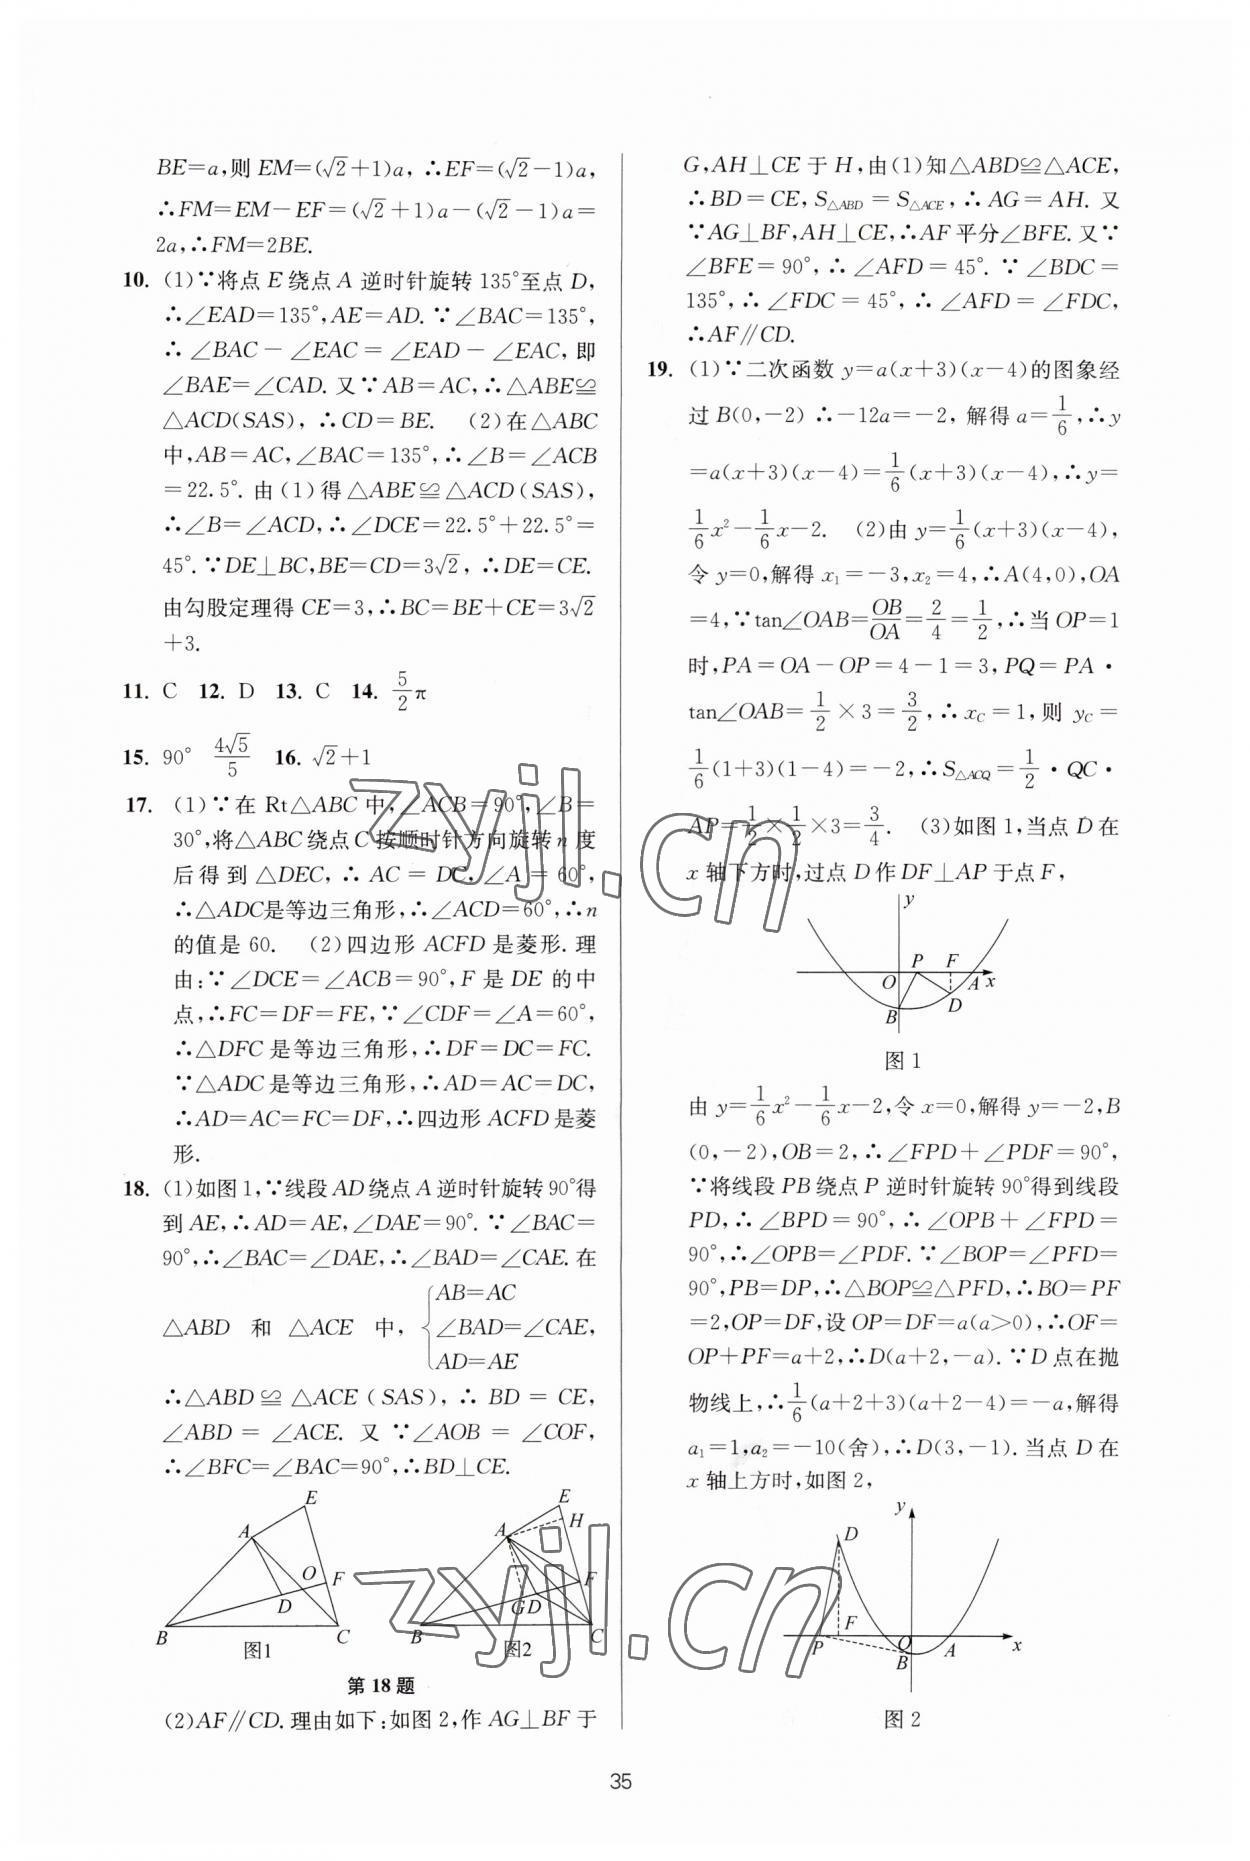 BE=a,则 EM=(√2+1)a, ∴EF=(√2-1)a,
∴FM=EM-EF=(√2+1)a-(√2-1)a=
2a,∴FM=2BE.
10. (1)∵将点 E 绕点 A 逆时针旋转 135°至点 D,
∴∠EAD=135°,AE=AD. ∵∠BAC=135°,
∴ ∠BAC-∠EAC=∠EAD-∠EAC,即
∠BAE=∠CAD. 又∵AB=AC,∴△ABE≌
△ACD(SAS), ∴CD=BE. (2)在△ABC
中,AB=AC,∠BAC=135°,∴∠B=∠ACB
=22.5°. 由(1)得△ABE≌△ACD(SAS),
∴∠B=∠ACD,∴∠DCE=22.5°+22.5°=
45°. ∵DE⊥BC,BE=CD=3√2, ∴DE=CE.
由勾股定理得 CE=3,∴BC=BE+CE=3√2
+3.
11. C 12. D 13. C 14. 5/2π
15. 90° 4√5/5 16. √2+1
17. (1)∵在 Rt△ABC 中,∠ACB=90°,∠B=
30°,将△ABC绕点C按顺时针方向旋转n度
后得到△DEC, ∴ AC = DC, ∠A = 60°,
∴△ADC是等边三角形,∴∠ACD=60°,∴n
的值是 60. (2)四边形 ACFD 是菱形. 理
由:∵∠DCE=∠ACB=90°,F 是 DE 的中
点,∴FC=DF=FE,∵∠CDF=∠A=60°,
∴△DFC 是等边三角形,∴DF=DC=FC.
∵△ADC 是等边三角形,∴AD=AC=DC,
∴AD=AC=FC=DF,∴四边形 ACFD 是菱
形.
18. (1)如图1,∵线段AD绕点A逆时针旋转90°得
到 AE,∴AD=AE,∠DAE=90°. ∵∠BAC=
90°,∴∠BAC=∠DAE,∴∠BAD=∠CAE. 在
AB=AC
△ABD 和 △ACE 中, {∠BAD=∠CAE,
AD=AE
∴△ABD ≌ △ACE (SAS), ∴ BD = CE,
∠ABD = ∠ACE. 又 ∵∠AOB = ∠COF,
∴∠BFC=∠BAC=90°,∴BD⊥CE.
E
A
O
F
D
B
C
图1
E
H
A
F
G D
B
C
图2
第 18 题
(2)AF∥CD. 理由如下:如图 2,作 AG⊥BF 于
G,AH⊥CE 于 H,由(1)知△ABD≌△ACE,
∴BD=CE,S△ABD=S△ACE,∴AG=AH. 又
∵AG⊥BF,AH⊥CE,∴AF 平分∠BFE. 又∵
∠BFE=90°,∴∠AFD=45°. ∵∠BDC=
135°,∴∠FDC=45°,∴∠AFD=∠FDC,
∴AF∥CD.
19. (1)∵二次函数 y=a(x+3)(x-4)的图象经
过 B(0,-2) ∴-12a=-2, 解得 a=1/6,∴y
=a(x+3)(x-4)=1/6(x+3)(x-4),∴y=
1/6x²-1/6x-2. (2)由 y=1/6(x+3)(x-4),
令 y=0,解得 x₁=-3,x₂=4,∴A(4,0),OA
=4,∵tan∠OAB=OB/OA=2/4=1/2,∴当 OP=1
时,PA=OA-OP=4-1=3,PQ=PA·
tan∠OAB=1/2×3=3/2,∴x_C=1,则 y_C=
1/6(1+3)(1-4)=-2,∴S△ACQ=1/2·QC·
AP=1/2×1/2×3=3/4. (3)如图 1,当点 D 在
x 轴下方时,过点 D 作 DF⊥AP 于点 F,
y
P
F
O
A
x
B
D
图 1
由 y=1/6x²-1/6x-2,令 x=0,解得 y=-2,B
(0,-2),OB=2,∴∠FPD+∠PDF=90°,
∵将线段 PB 绕点 P 逆时针旋转 90°得到线段
PD,∴∠BPD=90°,∴∠OPB+∠FPD=
90°,∴∠OPB=∠PDF. ∵∠BOP=∠PFD=
90°,PB=DP,∴△BOP≌△PFD,∴BO=PF
=2,OP=DF,设 OP=DF=a(a>0),∴OF=
OP+PF=a+2,∴D(a+2,-a). ∵D 点在抛
物线上,∴1/6(a+2+3)(a+2-4)=-a,解得
a₁=1,a₂=-10(舍),∴D(3,-1). 当点 D 在
x 轴上方时,如图 2,
y
D
F
P
O
A
x
B
图 2
35
zyjl.cn
zyjl.cn